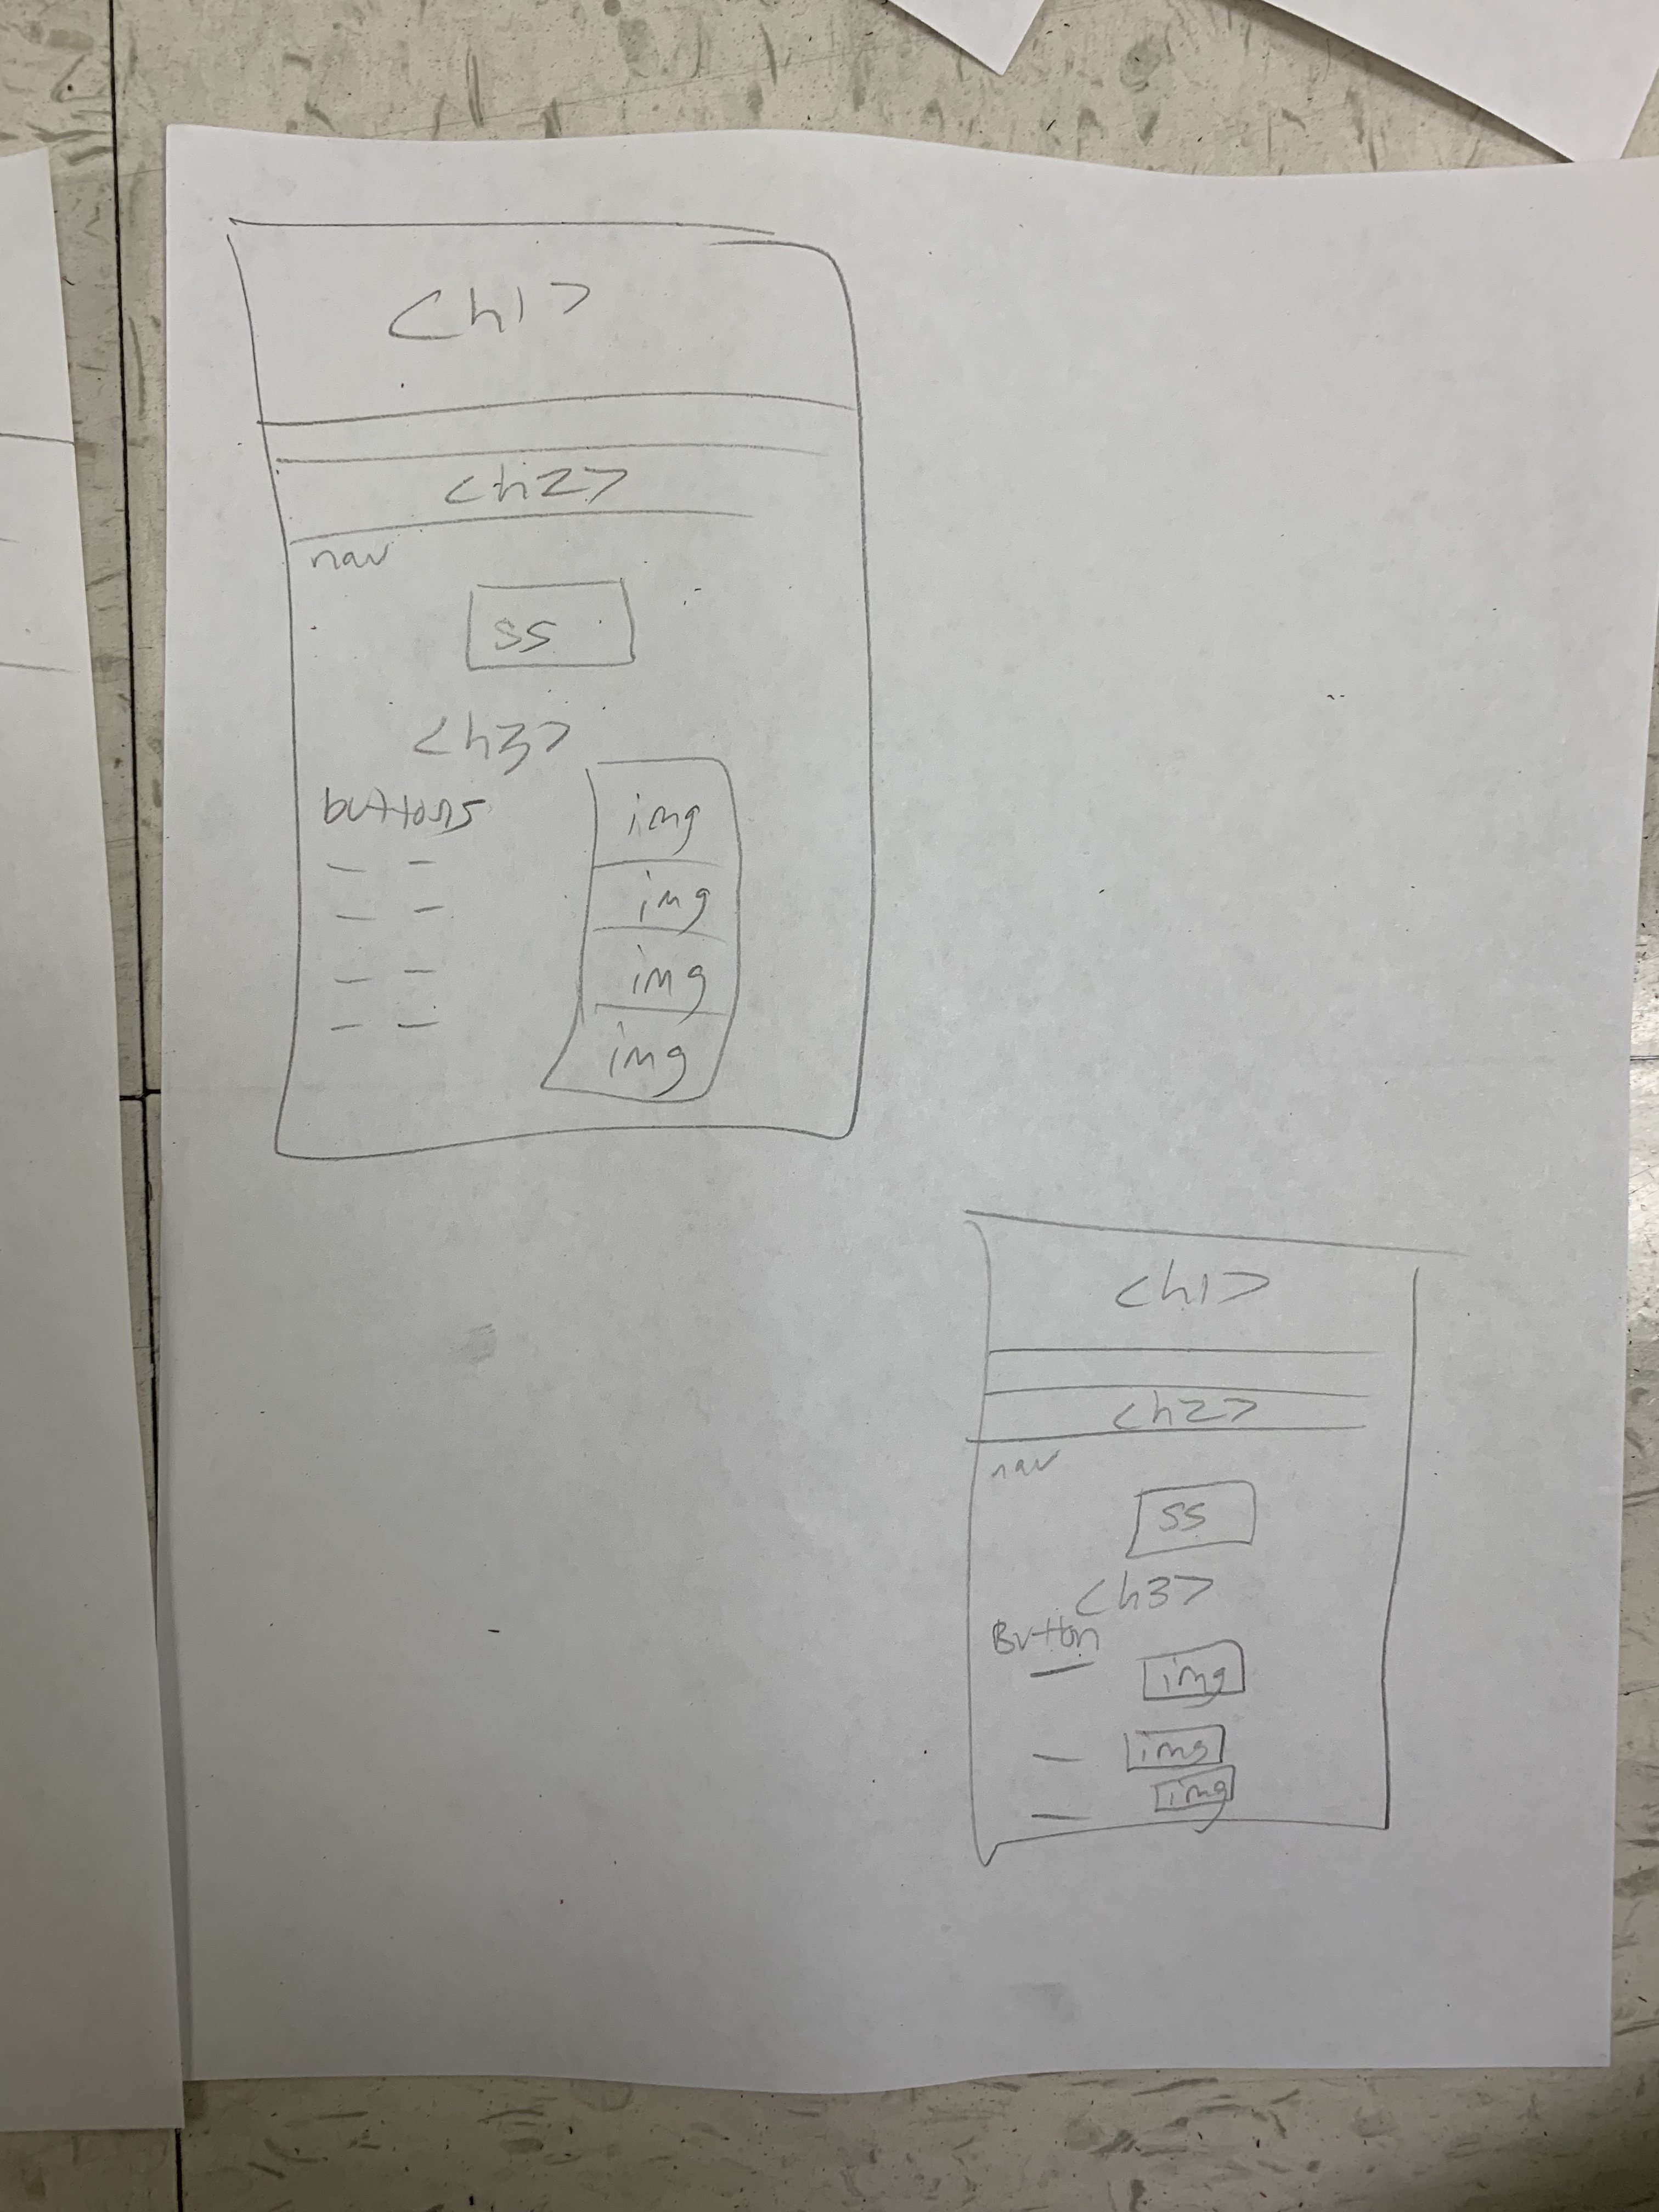 <h1>
<h2>
nav
SS
<h3>
buttons
img
img
img
img
<h1>
<h2>
nav
SS
<h3>
Button
img
img
img